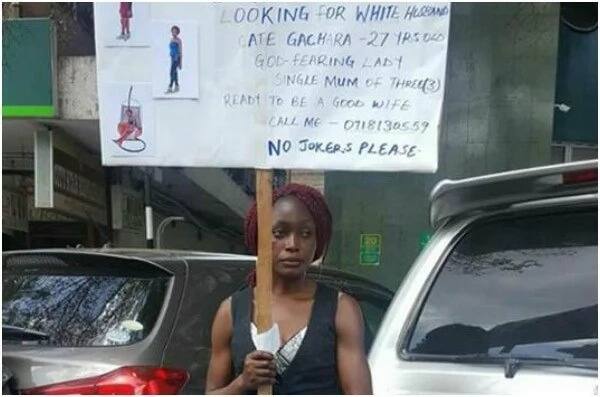 LOOKING FOR WHITE HUSBAND
CATE GACHARA - 27 YRS OLD
GOD-FEARING LADY
SINGLE MUM OF THREE(3)
READY TO BE A GOOD WIFE
CALL ME - 0718130559
NO JOKERS PLEASE.